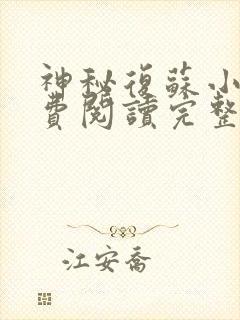 神秘復蘇小
費閱讀完整
江安喬